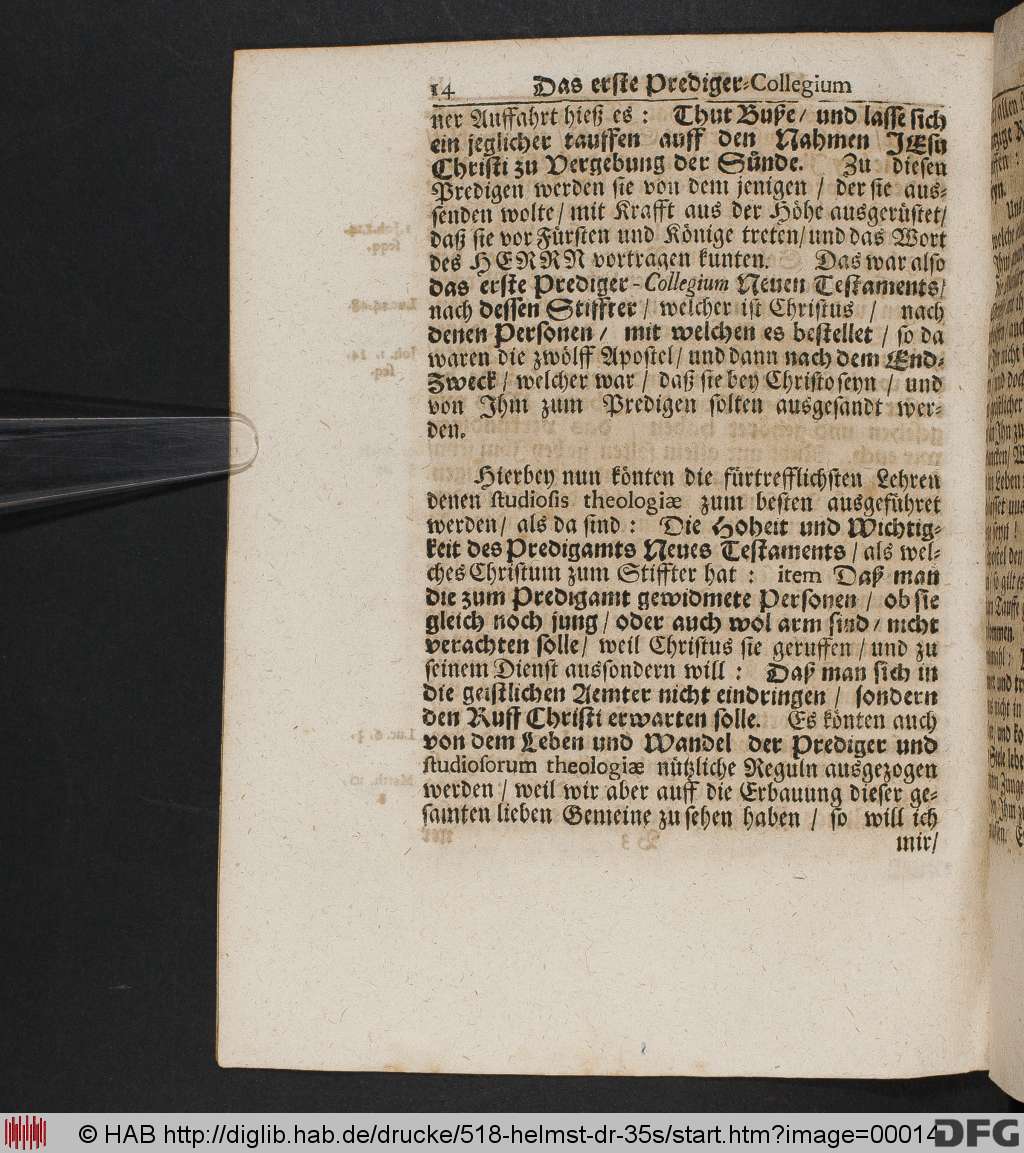 14 Das erste Prediger-Collegium
ner Auffahrt hieß es : Thut Buße / und lasse sich
ein jeglicher tauffen auff den Nahmen JEsu
Christi zu Vergebung der Sünde. Zu diesen
Predigen werden sie von dem jenigen / der sie aus-
senden wolte / mit Krafft aus der Höhe ausgerüstet /
daß sie vor Fürsten und Könige treten / und das Wort
des HERRN vortragen kunten. Das war also
das erste Prediger-Collegium Neuen Testaments /
nach dessen Stiffter / welcher ist Christus / nach
denen Personen / mit welchen es bestellet / so da
waren die zwölff Apostel / und dann nach dem End-
Zweck / welcher war / daß sie bey Christo seyn / und
von Ihm zum Predigen solten ausgesandt wer-
den.
Hierbey nun könten die fürtrefflichsten Lehren
denen studiosis theologiæ zum besten ausgeführet
werden / als da sind : Die Hoheit und Wichtig-
keit des Predigamts Neues Testaments / als wel-
ches Christum zum Stiffter hat : item Daß man
die zum Predigamt gewidmete Personen / ob sie
gleich noch jung / oder auch wol arm sind / nicht
verachten solle / weil Christus sie geruffen / und zu
seinem Dienst aussondern will : Daß man sich in
die geistlichen Aemter nicht eindringen / sondern
den Ruff Christi erwarten solle. Es könten auch
von dem Leben und Wandel der Prediger und
studiosorum theologiæ nützliche Reguln ausgezogen
werden / weil wir aber auff die Erbauung dieser ge-
samten lieben Gemeine zu sehen haben / so will ich
mir /
© HAB http://diglib.hab.de/drucke/518-helmst-dr-35s/start.htm?image=00014
DFG